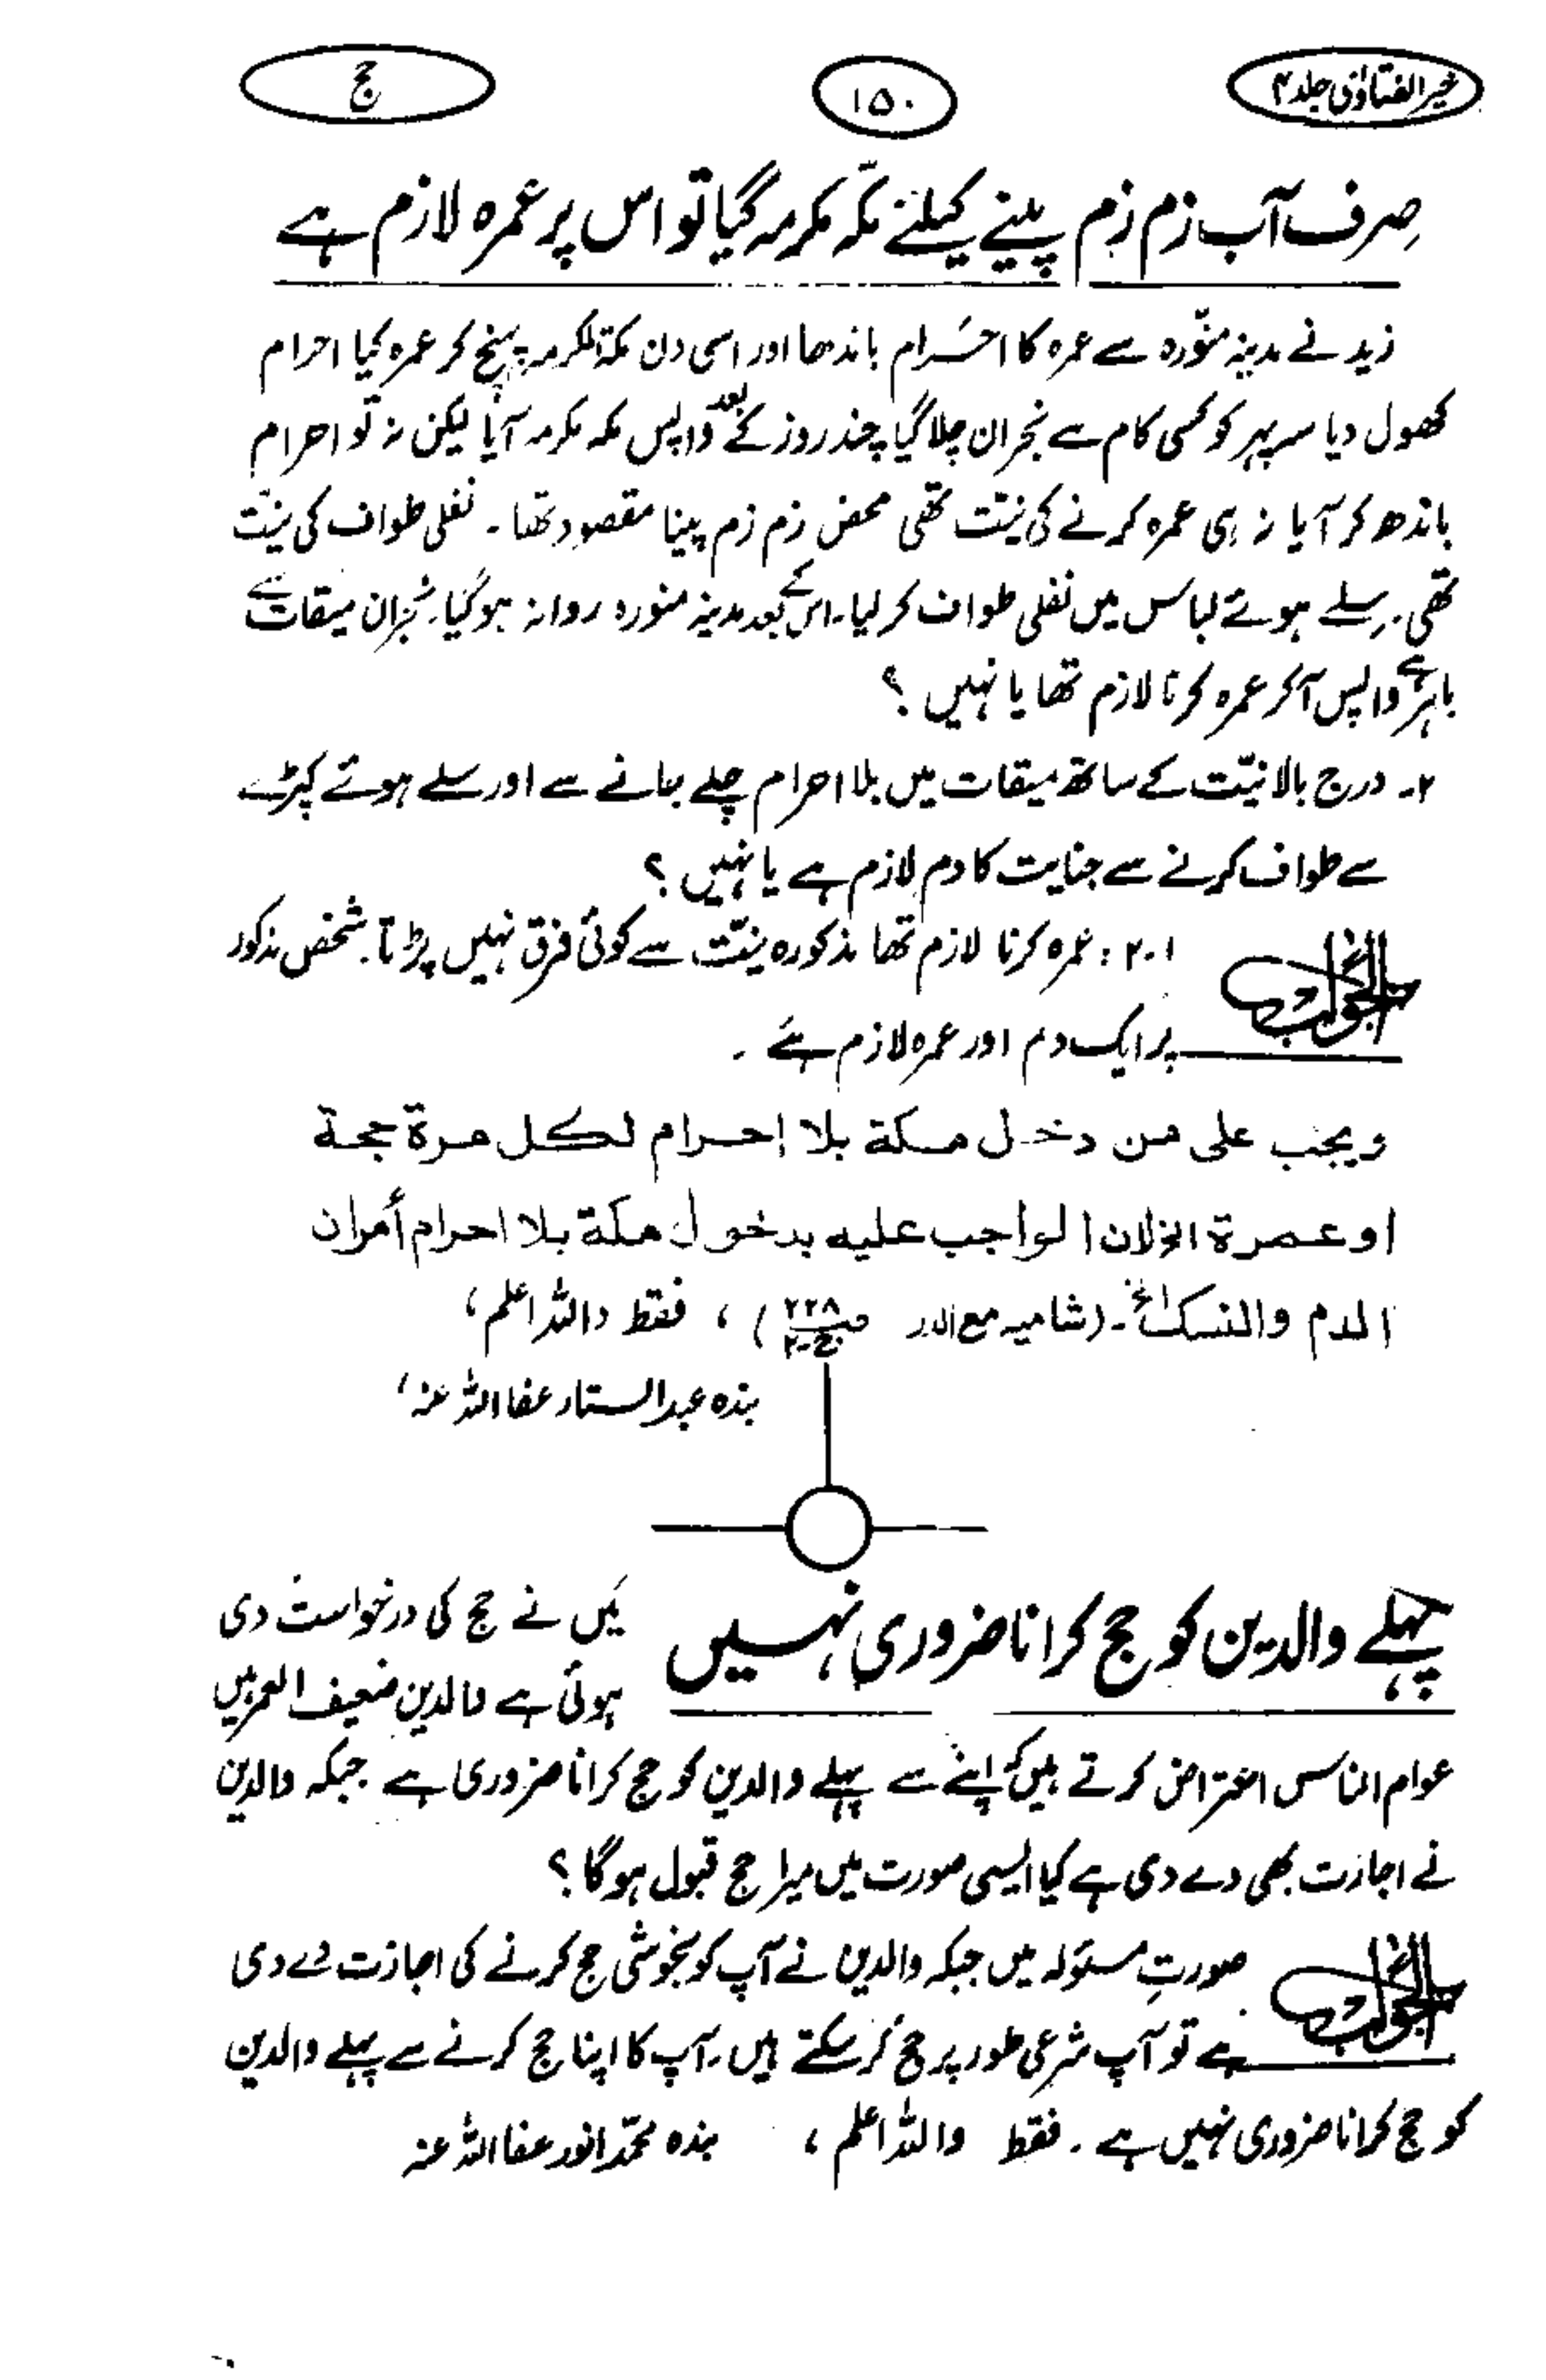 خیر الفتاویٰ جلد ۴
۱۵۰
حج
صِرف آب زم زم پینے کیلئے مکّہ مکرمہ گیا تو اس پر عمرہ لازم ہے
زید نے مدینہ منوّرہ سے عمرہ کا احرام باندھا اور اسی دن مکۃ المکرمہ پہنچ کر عمرہ کیا احرام
کھول دیا سہ پہر کو کسی کام سے نجران چلا گیا چند روز کے بعد واپس مکہ مکرمہ آیا لیکن نہ تو احرام
باندھ کر آیا نہ ہی عمرہ کرنے کی نیّت تھی محض زم زم پینا مقصود تھا۔ نفلی طواف کی نیّت
تھی۔ سِلے ہوئے لباس میں نفلی طواف کر لیا۔ اس کے بعد مدینہ منورہ روانہ ہوگیا۔ نجران میقات سے
باہر ہے واپس آکر عمرہ کرنا لازم تھا یا نہیں ؟
۲۔ درج بالا نیّت کے ساتھ میقات میں بلا احرام چلے جانے سے اور سلے ہوئے کپڑے
سے طواف کرنے سے جنایت کا دم لازم ہے یا نہیں ؟
الجواب ۱۔۲ : عمرہ کرنا لازم تھا مذکورہ نیّت سے کوئی فرق نہیں پڑتا۔ شخص مذکور
پر ایک دم اور عمرہ لازم ہے ۔
ويجب على من دخل مكة بلا إحرام لكل مرة حجة
او عمرة الخ لان الواجب عليه بدخول مكة بلا احرام أمران
الدم والنسك الخ۔ (شامیہ مع الدر ص۲۲۸ ج۲) ، فقط واللہ اعلم ،
بندہ عبدالستار عفا اللہ عنہ ،
پہلے والدین کو حج کرانا ضروری نہیں
میں نے حج کی درخواست دی
ہوئی ہے والدین ضعیف العمر ہیں
عوام الناس اعتراض کرتے ہیں کہ اپنے سے پہلے والدین کو حج کرانا ضروری ہے جبکہ والدین
نے اجازت بھی دے دی ہے کیا ایسی صورت میں میرا حج قبول ہوگا ؟
الجواب صورتِ مسئولہ میں جبکہ والدین نے آپ کو بخوشی حج کرنے کی اجازت دے دی
ہے تو آپ شرعی طور پر حج کر سکتے ہیں۔ آپ کا اپنا حج کرنے سے پہلے والدین
کو حج کرانا ضروری نہیں ہے ۔ فقط واللہ اعلم ، بندہ محمّد انور عفا اللہ عنہ